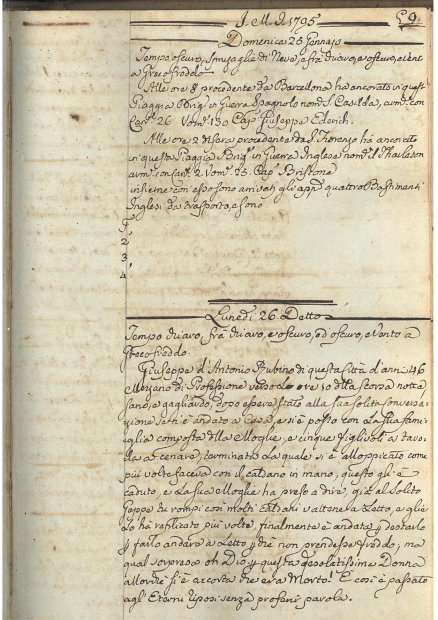 1795
Domenica 25 Gennajo
Tempo oscuro, di Neve, e frà chiaro, e oscuro, e vento
a Greco freddo
Alle ore 8 procedente da Barcellona ha ancorato in questa
Piaggia Brig. in Guerra Spagnolo nom. il Casilda, arm. con
Can. 26 Uom. 130 Cap. Giuseppe
Alle ore 2 di sera procedente da S. Fiorenzo ha ancorato
in questa Piaggia Brig. in Guerra Inglese nom. il
arm. con 2 Uom. 25. Cap.
insieme con esso sono arrivati gli quattro Bastimenti
Inglesi da trasporto, e sono
1
2
3
4
Lunedì 26 Detto
Tempo chiaro, frà chiaro, e oscuro, ed oscuro, e vento a
Greco freddo
Giuseppe d'Antonio Rubino di questa Città d'anni 46
di Professione verso le ore 10 della scorsa notte
sano, e gagliardo, dopo essere stato alla sua solita conversa
zione se n'è andato a Casa, e si è posto con la sua fami
glia composta della Moglie, e cinque figlioli a tavo
la a cenare, terminata la quale si è alloppicato come
più volte faceva con il caldano in mano, questo gli è
caduto, e la sua Moglie ha preso a dire, al solito
Geppe tu rompi con molti Caldani vattene a Letto, e glie
lo ha replicato più volte, finalmente è andata p destarlo
p farlo andare a Letto p chè non prendesse freddo; ma
qual sorpresa oh Dio p questa desolatissima Donna
allorchè si è accorta che era Morto! E così è passato
agl'Eterni riposi senza proferir parola.